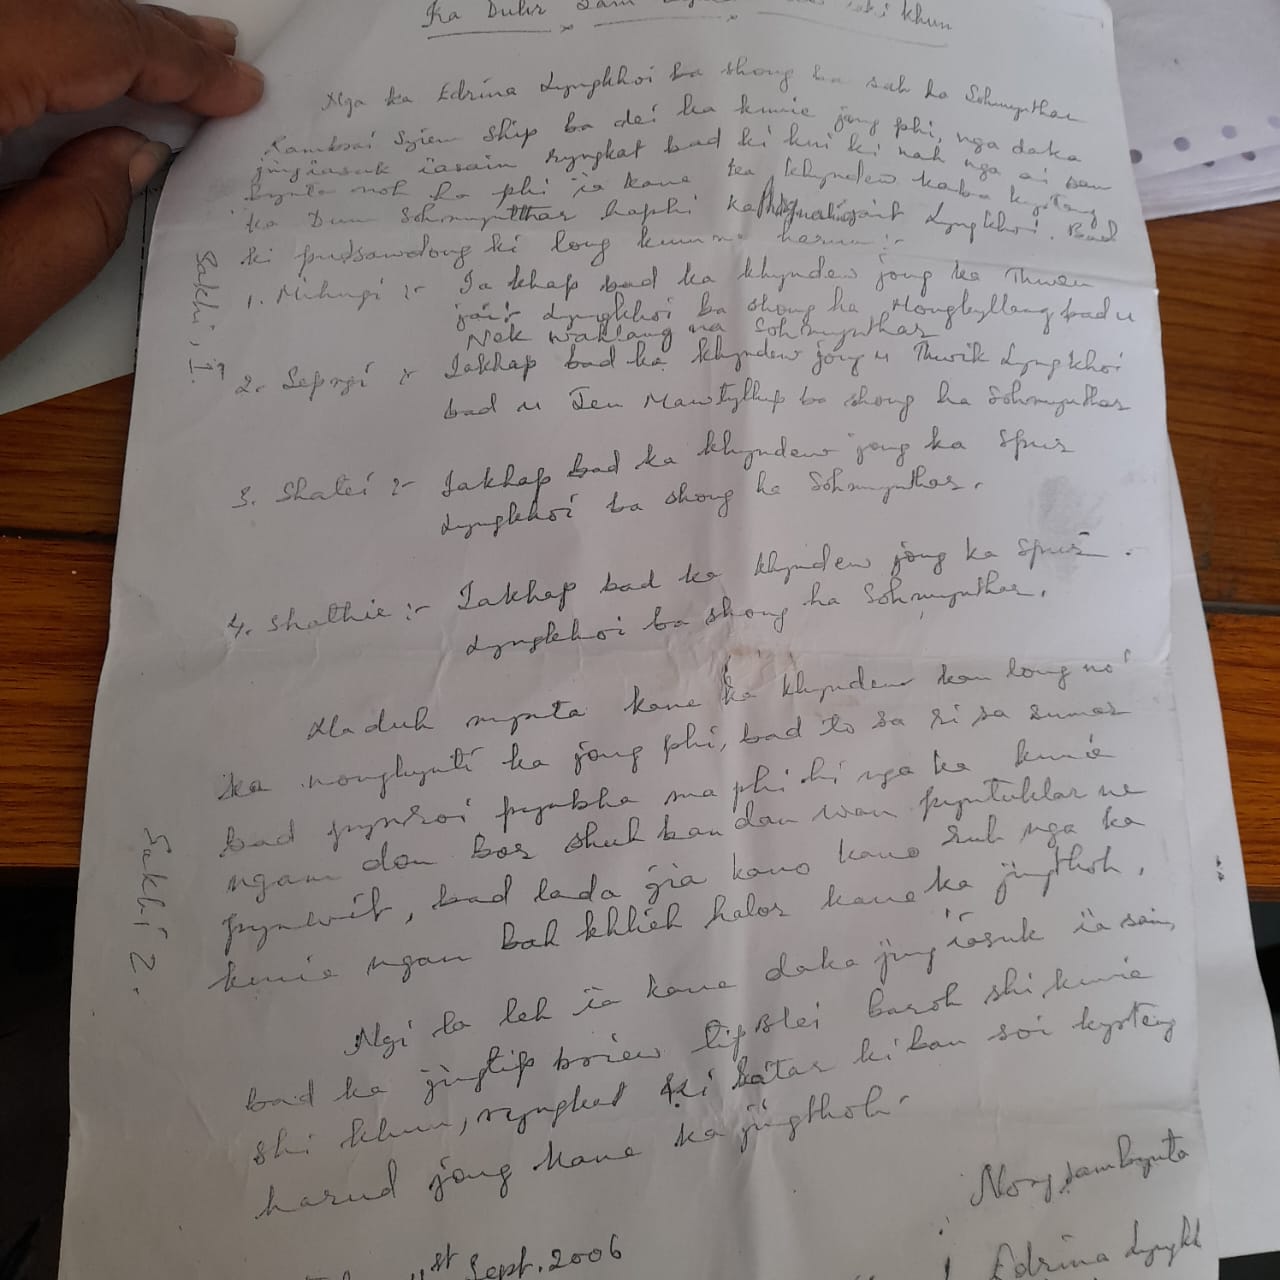 Ka Duhr Sam khun
Nga ka Edrina Lyngkhoi ba shong ba sah ha Sohmynthar
Rambrai Syiem ship ba dei ka kmie jong phi, nga daka
jingiasuk iasain ryngkat bad ki kni ki nah nga ai san
bynta noh ha phi ïa kane ka khyndew kaba kyrteng
ka Dum Sohmynthar haphi ka Lyngkhoi. Bad
ki pudsawdong ki long kumne harum :-
1. Mihngi :- Ia khap bad ka khyndew jong ka Thwen
jait Lyngkhoi ba shong ha Mongkyllang bad u
Nek Wahlang na Sohmynthar
2. Sepngi :- Iakhap bad ka khyndew jong u Thwik Lyngkhoi
bad u Jen Mawtyllup ba shong ha Sohmynthar
3. Shatei :- Iakhap bad ka khyndew jong ka Spus
Lyngkhoi ba shong ha Sohmynthar.
4. Shathie :- Iakhap bad ka khyndew jong ka Spus
Lyngkhoi ba shong ha Sohmynthar.
Naduh mynta kane ka khyndew kan long noh
ka nongkynti ka jong phi, bad to sa ri sa sumar
bad pynroi pynbha ma phi hi nga ka kmie
ngam don bor shuh ban dan wan pyntuklar ne
pynwit, bad lada jia kano kano ruh nga ka
kmie ngan bah khlieh halor kane ka jingthoh.
Ngi la leh ïa kane daka jingïasuk ïa sain,
bad ka jingtip briew tipblei baroh shi kmie
shi khun, ryngkat ki batar kiban soi kyrteng
harud jong kane ka jingthoh.
1st Sept. 2006
Nongsambynta
Edrina Lyngkh
Sakhi, 1.
Sakhi 2.